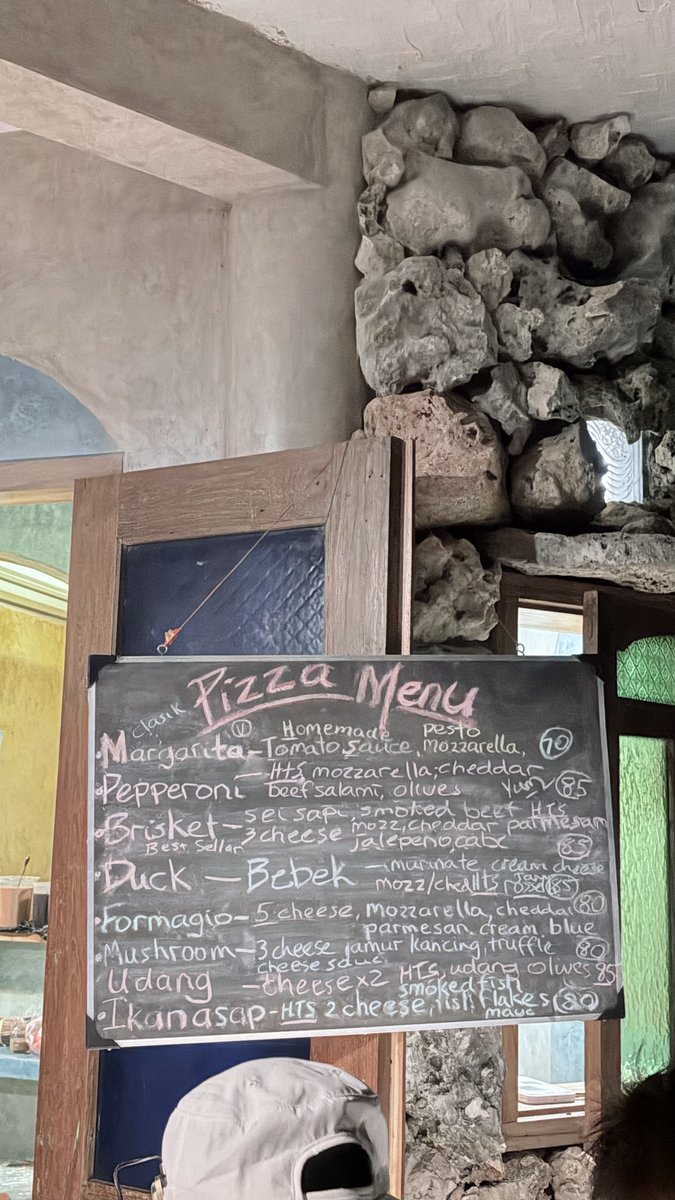 Pizza Menu
clasik
(V) Homemade pesto
• Margarita - Tomato Sauce, mozzarella, 70
• Pepperoni - HTS mozzarella, cheddar
beef salami, olives Yum 85
• Brisket - sei sapi, smoked beef HTS
Best Sellar 3 cheese mozz, cheddar parmesan
jalepeno, cabe 85
• Duck - Bebek - marinate cream cheese
mozz/ched HTS 85
• Formagio - 5 cheese, mozzarella, cheddar 80
parmesan cream blue
• Mushroom - 3 cheese jamur kancing, truffle 80
cheese sauc
Udang - cheese x2 HTS, udang olives 85
smoked fish
• Ikan asap - HTS 2 cheese, fish flakes 80